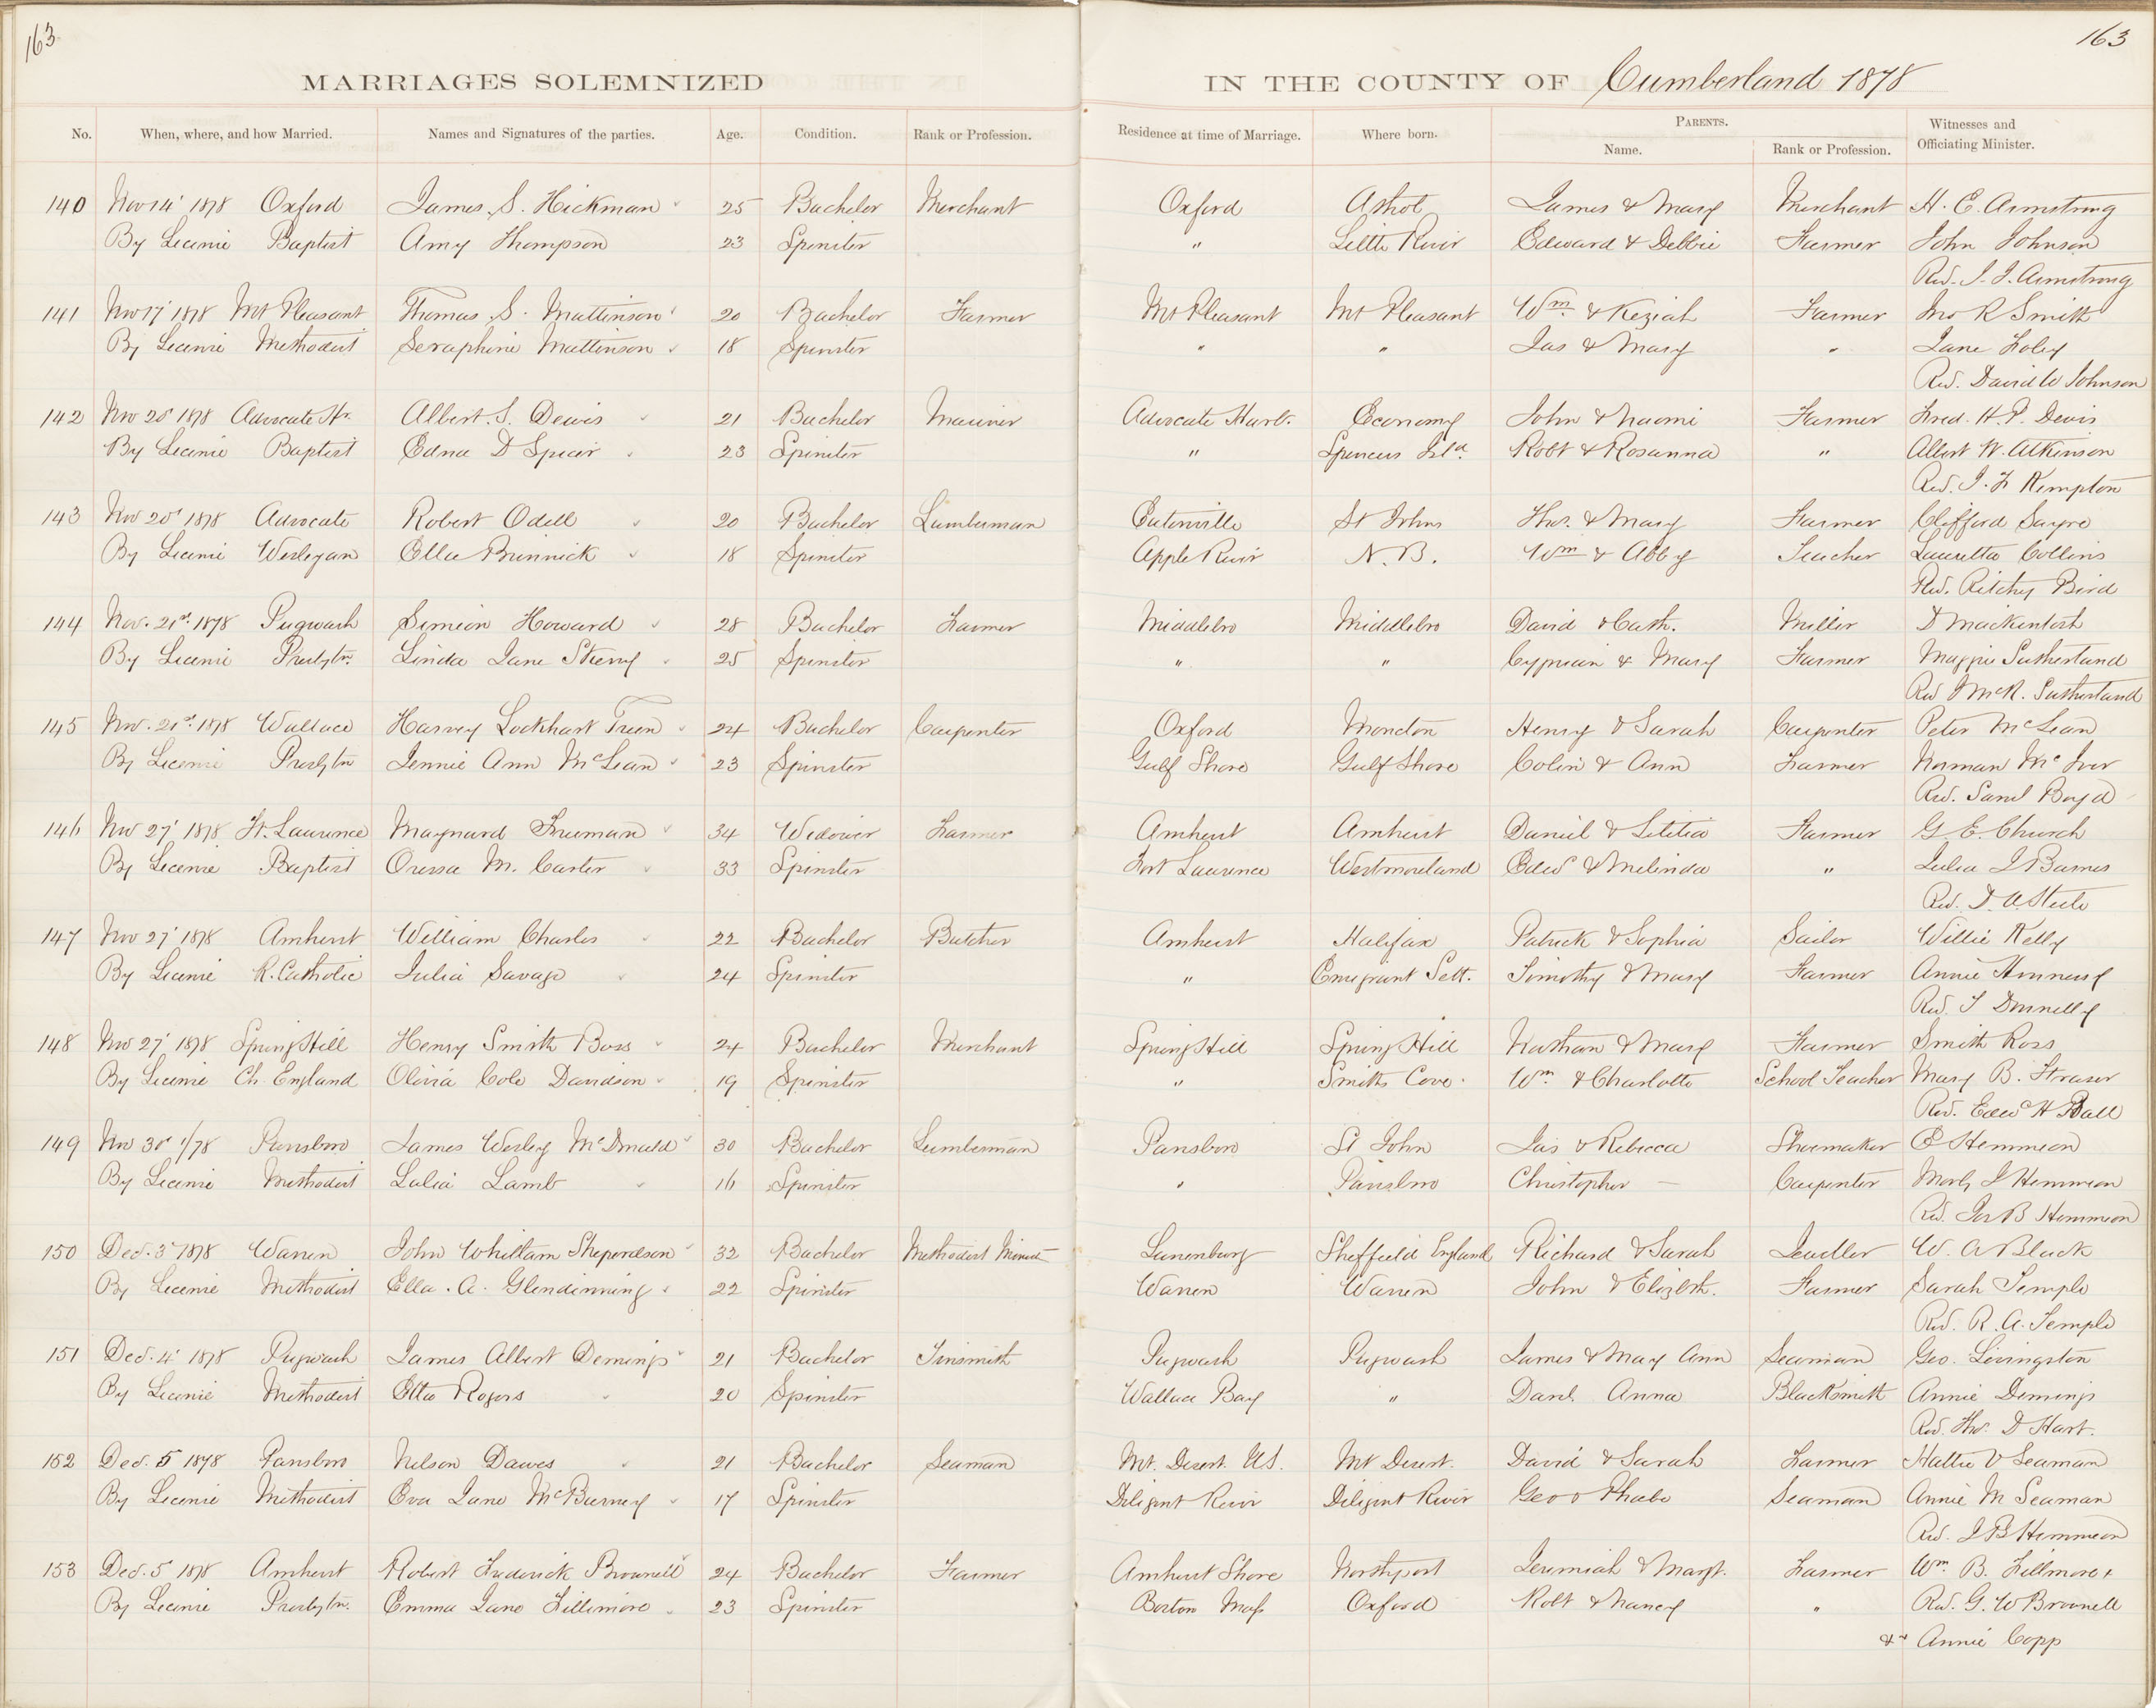 163
163
MARRIAGES SOLEMNIZED IN THE COUNTY OF Cumberland 1878
No. When, where, and how Married. Names and Signatures of the parties. Age. Condition. Rank or Profession. Residence at time of Marriage. Where born. PARENTS. Name. Rank or Profession. Witnesses and Officiating Minister.
140 Nov 14' 1878 Oxford James S. Hickman 25 Bachelor Merchant Oxford James & Mary Merchant H. E. Armstrong
By License Baptist Amy Thompson 23 Spinster " Little River Edward & Debbie Farmer John Johnson
Rev. Armstrong
141 Nov 17' 1878 Mt Pleasant Thomas S. Mattinson 20 Bachelor Farmer Mt Pleasant Mt Pleasant Wm & Keziah Farmer Jno R Smith
By License Methodist Seraphine Mattinson 18 Spinster " " Jas & Mary " Jane Foley
Rev. David W Johnson
142 Nov 20' 1878 Advocate Hr. Albert S. Dewis 21 Bachelor Mariner Advocate Harb. Economy John & Naomi Farmer Fred. H. P. Dewis
By License Baptist Edna D Spicer 23 Spinster " Spencers Isld. Robt & Rosanna " Albert W. Atkinson
Rev. J. F. Kempton
143 Nov 20' 1878 Advocate Robert Odell 20 Bachelor Lumberman Eatonville St Johns Thos. & Mary Farmer Clifford Sayre
By License Wesleyan Ella Brinnick 18 Spinster Apple River N. B. Wm & Abby Teacher Lauretta Collins
Rev. Ritchey Bird
144 Nov. 21st. 1878 Pugwash Simeon Howard 28 Bachelor Farmer Middlebro Middlebro David & Cath. Miller D Mackintosh
By License Presbytn. Linda Jane Sterry 25 Spinster " " Cyprian & Mary Farmer Maggie Sutherland
Rev J McK. Sutherland
145 Nov. 21st. 1878 Wallace Harvey Lockhart Treen 24 Bachelor Carpenter Oxford Moncton Henry & Sarah Carpenter Peter McLean
By License Presbytn Jennie Ann McLean 23 Spinster Gulf Shore Gulf Shore Colin & Ann Farmer Norman McIver
Rev. Saml Boyd
146 Nov 27' 1878 Ft. Laurence Maynard Freeman 34 Widower Farmer Amherst Amherst Daniel & Letitia Farmer G E. Church
By License Baptist Oressa M. Carter 33 Spinster Fort Laurence Westmoreland Edwd & Melinda " Julia J Barnes
Rev. D. A Steele
147 Nov 27' 1878 Amherst William Charles 22 Bachelor Butcher Amherst Halifax Patrick & Sophia Sailor Willie Kelly
By License R. Catholic Julia Savage 24 Spinster " Emigrant Sett. Timothy & Mary Farmer Annie Hennesy
Rev. T Donnelly
148 Nov 27' 1878 Spring Hill Henry Smith Boss 24 Bachelor Merchant Spring Hill Spring Hill Nathan & Mary Farmer Smith Ross
By License Ch. England Olivia Cole Davidson 19 Spinster " Smiths Cove. Wm & Charlotte School Teacher Mary B. Fraser
Rev. Edwd H Ball
149 Nov 30' /78 Parrsboro James Wesley McDonald 30 Bachelor Lumberman Parrsboro St John Jas & Rebecca Shoemaker E Hemmeon
By License Methodist Lalia Lamb 16 Spinster " Parrsboro Christopher — Carpenter J Hemmeon
Rev. Jas B Hemmeon
150 Dec. 3' 1878 Warren John Whittam Sheperdson 32 Bachelor Methodist Minist Lunenburg Sheffield England Richard & Sarah W. A Black
By License Methodist Ella. A. Glendinning 22 Spinster Warren Warren John & Elizbth. Farmer Sarah Temple
Rev. R. A. Temple
151 Dec. 4' 1878 Pugwash James Albert Demings 21 Bachelor Tinsmith Pugwash Pugwash James & Mary Ann Seaman Geo. Livingston
By License Methodist Etta Rogers 20 Spinster Wallace Bay " Danl. Anna Blacksmith Annie Demings
Rev. Thos. D Hart.
152 Dec. 5 1878 Parrsboro Nelson Dawes 21 Bachelor Seaman Mt. Desert U.S. Mt Desert. David & Sarah Farmer Hattie V Seaman
By License Methodist Eva Jane McBurney 17 Spinster Diligent River Diligent River Geo & Phoebe Seaman Annie M Seaman
Rev. J B Hemmeon
153 Dec. 5 1878 Amherst Robert Frederick Brownell 24 Bachelor Farmer Amherst Shore Northport Jeremiah & Margt. Farmer Wm. B. Fillmore
By License Presbytn. Emma Jane Fillimore 23 Spinster Boston Mass Oxford Robt & Nancy " Rev. G. W Brownell
& Annie Copp